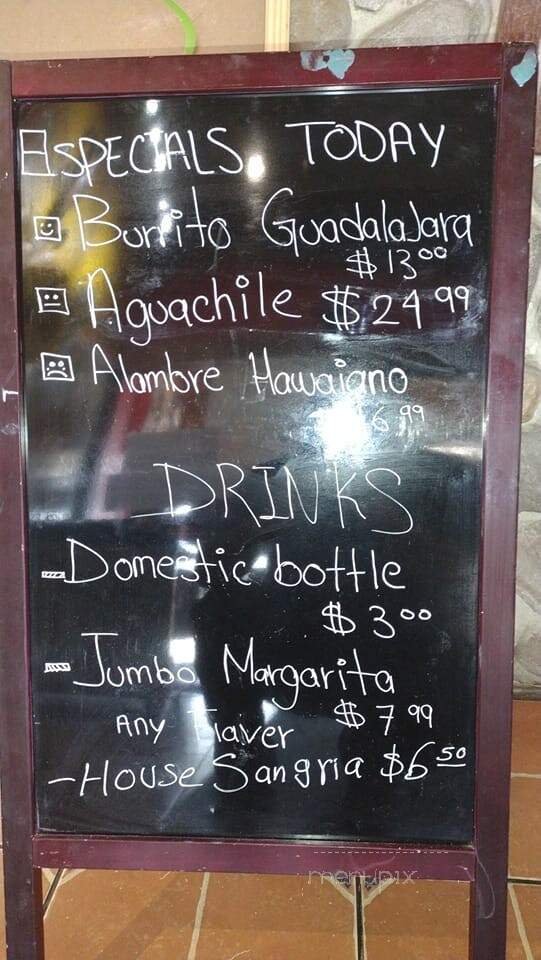 ESPECIALS TODAY
Burrito GuadalaJara
$ 13.00
Aguachile $ 24.99
Alambre Hawaiano
6.99
DRINKS
-Domestic bottle
$ 3.00
-Jumbo Margarita
Any Flaver $ 7.99
-House Sangria $6.50
menupix